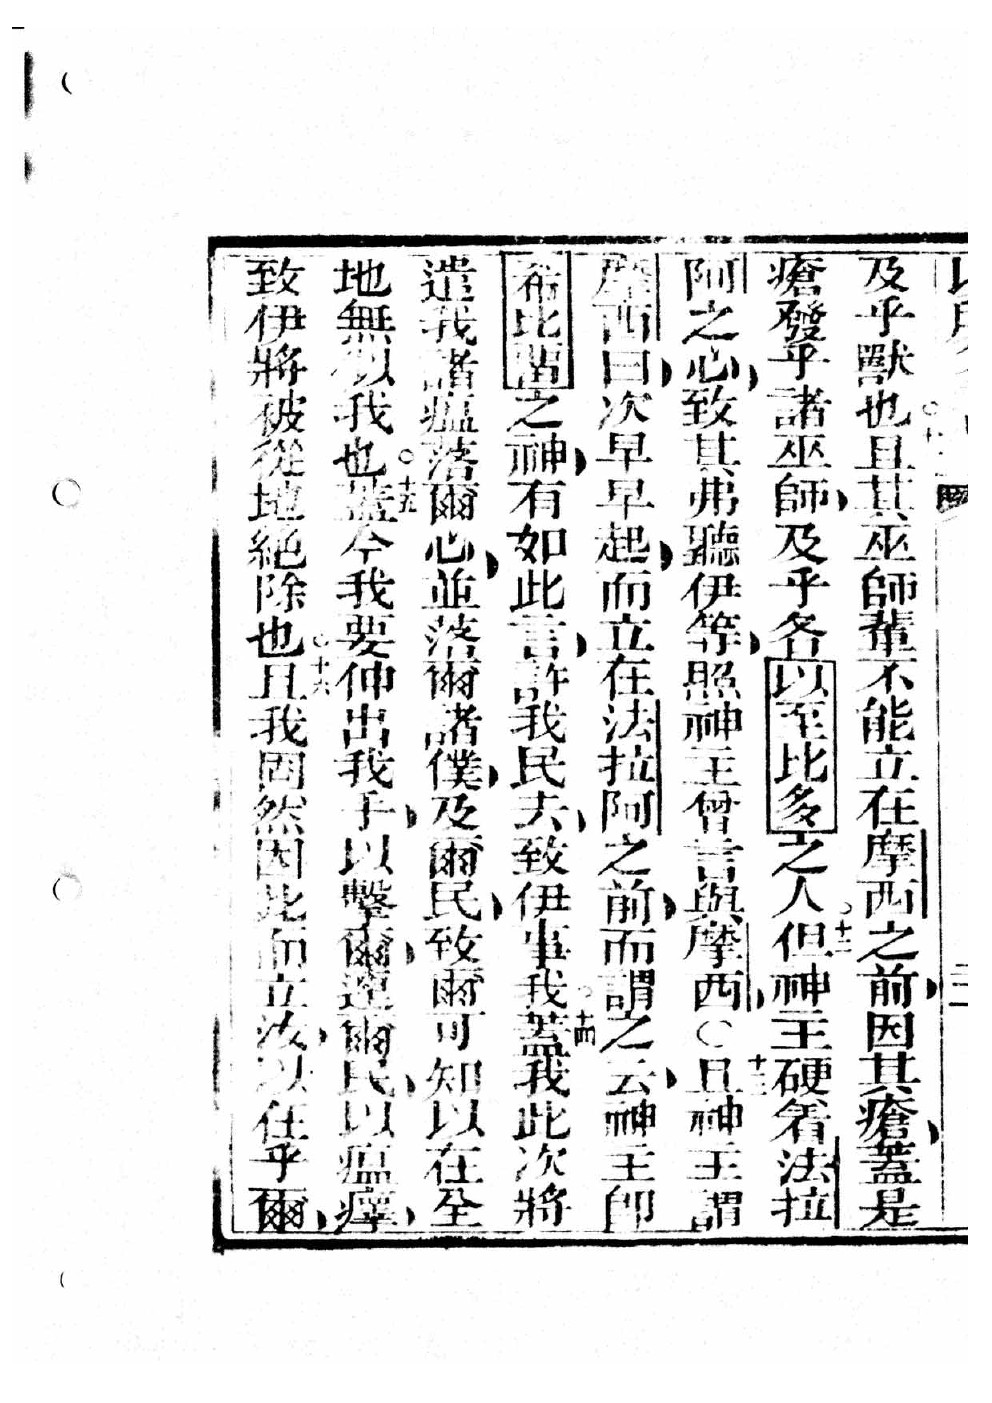 及乎獸也○十一且其巫師輩不能立在摩西之前因其瘡蓋是
瘡發乎諸巫師及乎各以至比多之人○十二但神主硬着法拉
阿之心致其弗聽伊等照神主曾言與摩西○十三且神主謂
摩西曰次早早起而立在法拉阿之前而謂之云神主即
希比留之神有如此言許我民去致伊事我○十四蓋我此次將
遣我諸瘟落爾心並落爾諸僕及爾民致爾可知以在全
地無似我也○十五蓋今我要伸出我手以擊爾連爾民以瘟瘴
致伊將被從地絕除也○十六且我固然因此而立汝以任乎爾